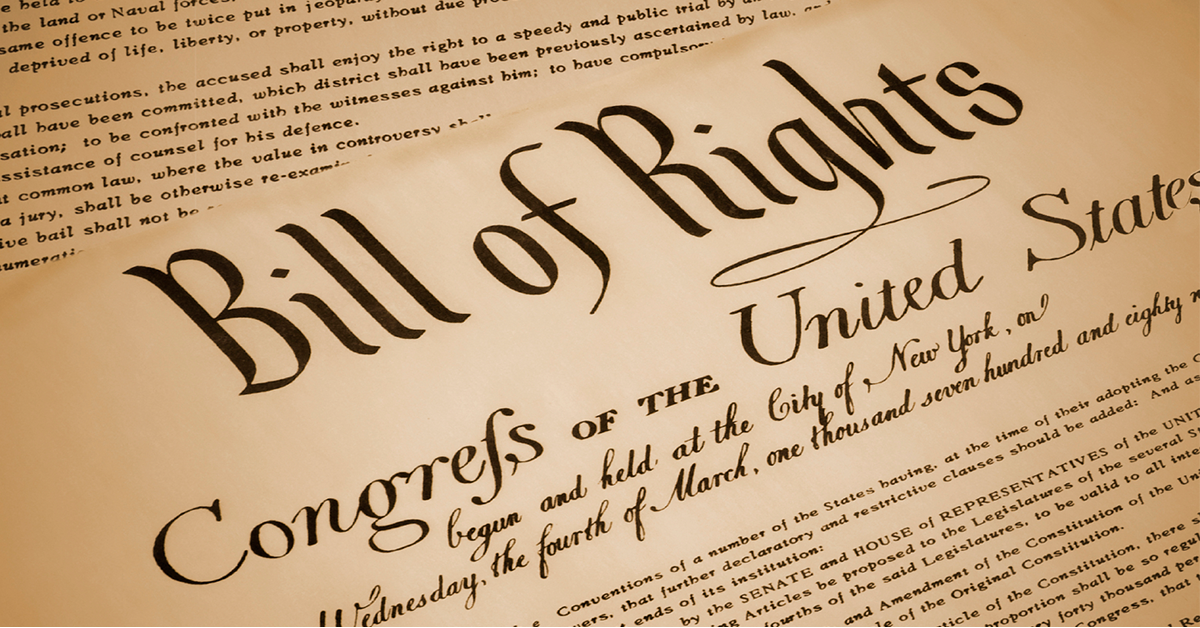 the land or Naval forces,
same offence to be twice put in jeopardy
deprived of life, liberty, or property, without due
prosecutions, the accused shall enjoy the right to a speedy and public trial by
have been committed, which district shall have been previously ascertained by law,
to be confronted with the witnesses against him; to have
of counsel for his defence.
common law, where the value in controversy
a jury, shall be otherwise
bail shall not be
Bill of Rights
Congreſs OF THE United States
begun and held at the City of New York, on
Wednesday, the fourth of March, one thousand seven hundred and eighty
Conventions of a number of the States having, at the time of their adopting the
that further declaratory and restrictive clauses should be added: And as
ends of its institution:
by the SENATE and HOUSE of REPRESENTATIVES of the
Articles be proposed to the Legislatures of the several
of the said Legislatures, to be valid to all
and Amendment of the Constitution of the
of the Original Constitution.
of the Constitution, there
shall be so
forty thousand
Congress, that